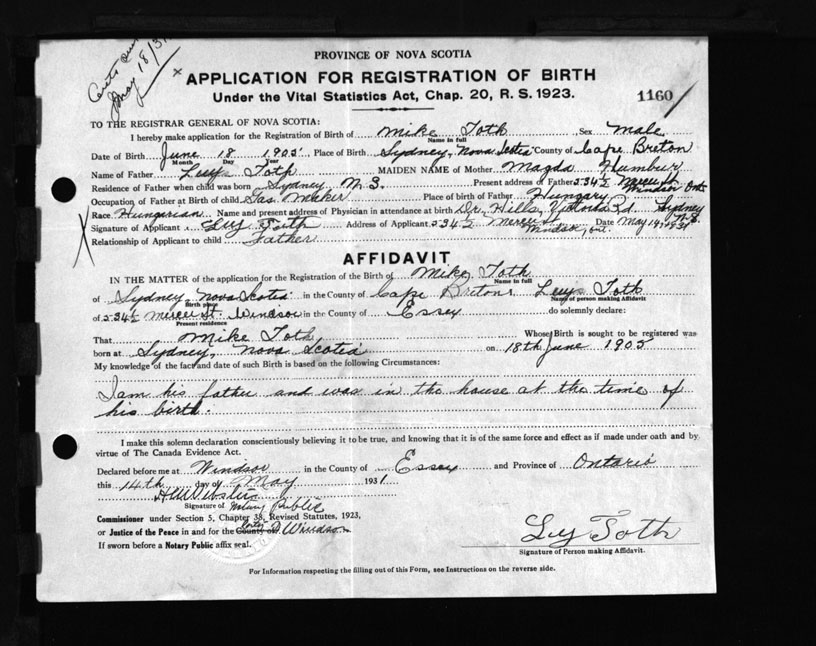 May 18/31
PROVINCE OF NOVA SCOTIA
APPLICATION FOR REGISTRATION OF BIRTH
Under the Vital Statistics Act, Chap. 20, R. S. 1923.
1160
TO THE REGISTRAR GENERAL OF NOVA SCOTIA:
I hereby make application for the Registration of Birth of Mike Toth Sex Male
Name in full
Date of Birth June 18 1905 Place of Birth Sydney, Nova Scotia County of Cape Breton
Month Day Year
Name of Father Luys Toth MAIDEN NAME of Mother Magda Humbur
Residence of Father when child was born Sydney N. S. Present address of Father 534½ Mercer St Windsor Ont
Occupation of Father at Birth of child Gas Maker Place of birth of Father Hungary
Race Hungarian Name and present address of Physician in attendance at birth Dr. Hills, Victoria Rd. Sydney N.S.
Signature of Applicant Luy Toth Address of Applicant 534½ Mercer St Windsor, Ont. Date May 14, 1931
Relationship of Applicant to child Father
AFFIDAVIT
IN THE MATTER of the application for the Registration of the Birth of Mike Toth
Name in full
of Sydney, Nova Scotia in the County of Cape Breton Luys Toth
Birth place Name of person making Affidavit
of 534½ Mercer St. Windsor in the County of Essex do solemnly declare:
Present residence
That Mike Toth Whose Birth is sought to be registered was
born at Sydney, Nova Scotia on 18th June 1905
My knowledge of the fact and date of such Birth is based on the following Circumstances:
I am his father and was in the house at the time of
his birth.
I make this solemn declaration conscientiously believing it to be true, and knowing that it is of the same force and effect as if made under oath and by
virtue of The Canada Evidence Act.
Declared before me at Windsor in the County of Essex and Province of Ontario
this 14th day of May 1931
Signature of Notary Public
Commissioner under Section 5, Chapter 38, Revised Statutes, 1923,
or Justice of the Peace in and for the County of Windsor
If sworn before a Notary Public affix seal.
Luy Toth
Signature of Person making Affidavit.
For Information respecting the filling out of this Form, see Instructions on the reverse side.